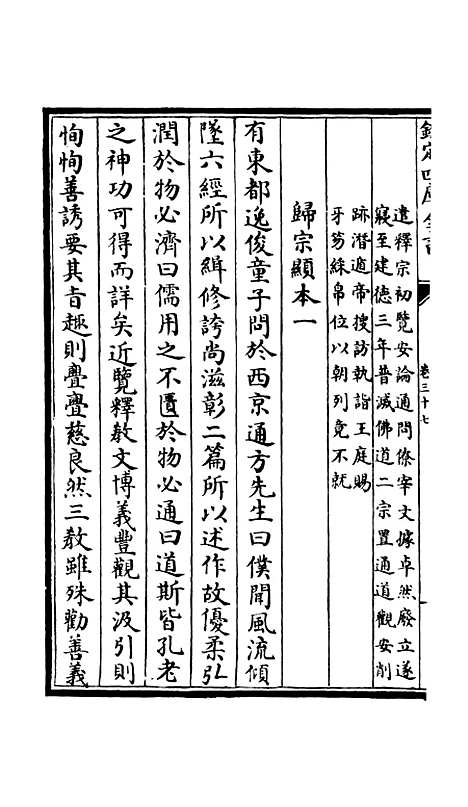 欽定四庫全書
卷三十七
遺釋宗初覽安論通問僚宰文據卓然廢立遂
寢至建德三年普滅佛道二宗置通道觀安削
跡潛遁帝搜訪執詣王庭賜
牙笏綵帛位以朝列竟不就
歸宗顯本一
有東都逸俊童子問於西京通方先生曰僕聞風流傾
墜六經所以緝修誇尚滋彰二篇所以述作故優柔弘
潤於物必濟曰儒用之不匱於物必通曰道斯皆孔老
之神功可得而詳矣近覽釋教文博義豐觀其汲引則
恂恂善誘要其㫖趣則亹亹慈良然三教雖殊勸善義